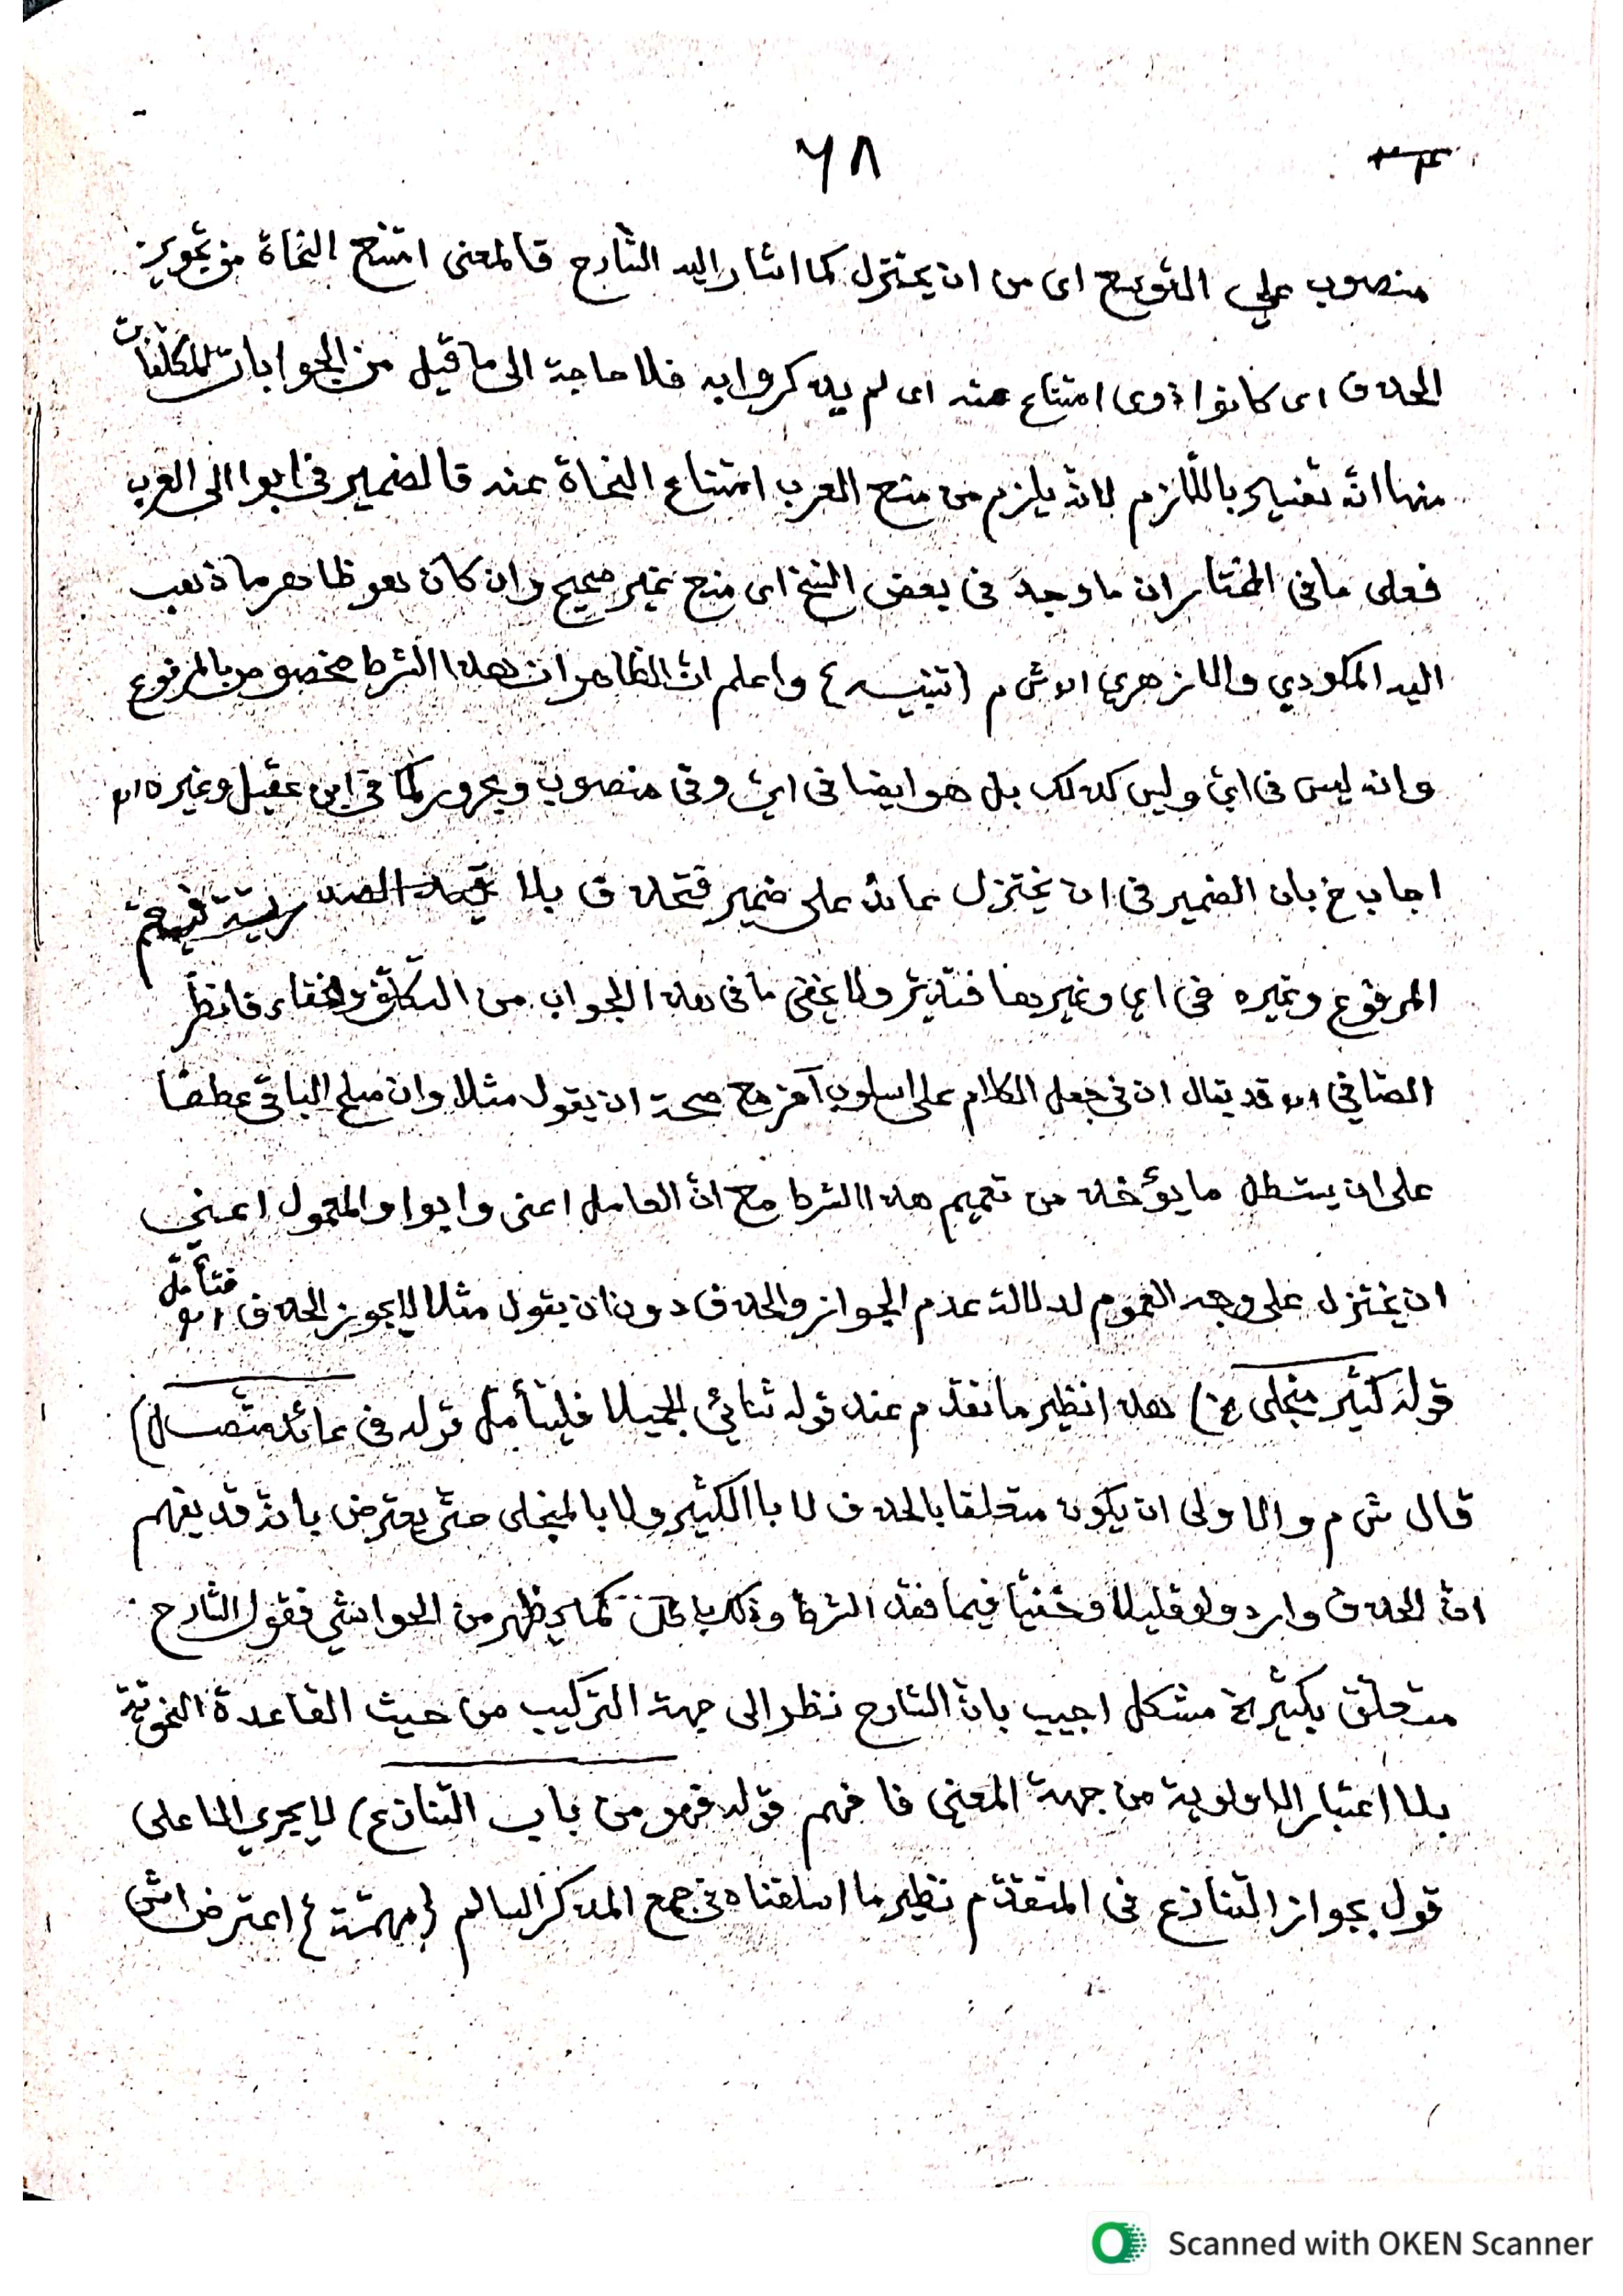 ٦٨
منصوب على التوسع اى من ان يختزل كما اشار اليه الشارح فالمعنى امتنع النحاة من تجويز
الحذف اى كانوا ذوى امتناع عنه اى لم يذكروا به فلا حاجة الى ما قيل من الجوابات للمكلفات
منها انه تفسير باللازم لانه يلزم من منع العرب امتناع النحاة عنه فالضمير فى ابوا الى العرب
فعلى ما فى المختار ان ما وجد فى بعض النسخ اى منع غير صحيح وان كان هو ظاهر ما ذهب
اليه المكودي والازهري اه ش م (تنبيه) واعلم انّ الظاهر ان هذا الشرط مخصوص بالمرفوع
وانه ليس فى ايّ وليس كذلك بل هو ايضا فى ايّ وفى منصوب ومجرور كما فى ابن عقيل وغيره اه م
اجاب خ بان الضمير فى ان يختزل عائد على ضمير فتحذف بلا قيد الصدرية فيعم
المرفوع وغيره فى اي وغيرها فتدبّر ولا يخفى ما فى هذا الجواب من التكلّف والخفاء فانظر
الصافي اه قد يقال ان فى جعل الكلام على اسلوب آخر مع صحة ان يقول مثلا وان صلح الباقى عطفا
على ان يستطل ما يؤخذ من تعميم هذا الشرط مع انّ العامل اعنى وابوا والمعمول اعنى
ان يختزل على وجه العموم لدلالة عدم الجواز والحذف دون ان يقول مثلا لا يجوز الحذف اه فتأمّل
قوله كثير منجلى الخ) هذا نظير ما تقدّم عند قوله ثنائي الجميلا فليتأمل قوله فى عائد متّصل)
قال ش م والاولى ان يكون متعلقا بالحذف لا بالكثير ولا بالمنجلى حتّى يعترض بانّه قد يفهم
انّ الحذف وارد ولو قليلا وخفيّا فيما فقد الشرط وذلك باطل كما يظهر من الحواشي فقول الشارح
متعلق بكثير الخ مشكل اجيب بانّ الشارح نظر الى جهة التركيب من حيث القاعدة النحويّة
بلا اعتبار الاولوية من جهة المعنى فافهم قوله فهو من باب التنازع) لا يجرى الا على
قول بجواز التنازع فى المتقدّم نظير ما اسلفناه فى جمع المذكر السالم (مهمّة) اعترض اش
Scanned with OKEN Scanner